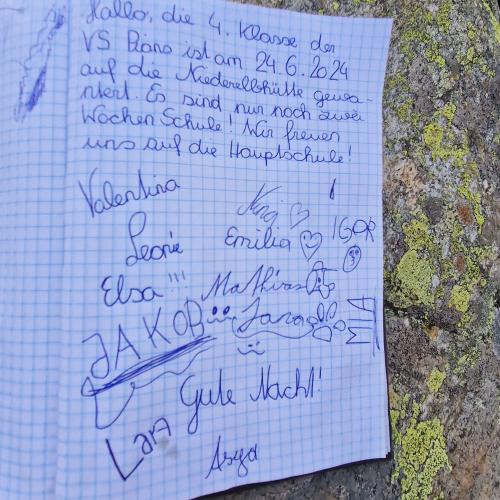 Hallo, die 4. Klasse der
VS Pians ist am 24.6.2024
auf die Niederelbhütte gewa-
ndert. Es sind nur noch zwei
Wochen Schule! Wir freuen
uns auf die Hauptschule!
Valentina
Leonie
Emilia
IGOR
Elsa!!!
Mathias
JAKOB
Jana
MIA
Gute Nacht!
Lara
Asya